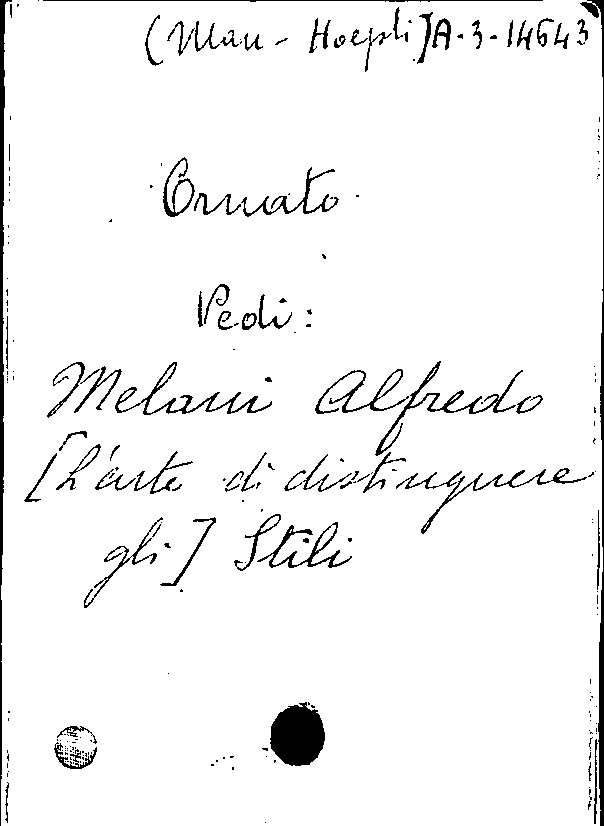 (Man - Hoepli] A-3-14643
Ornato
Vedi:
Melani Alfredo
[L'arte di distinguere
gli] Stili